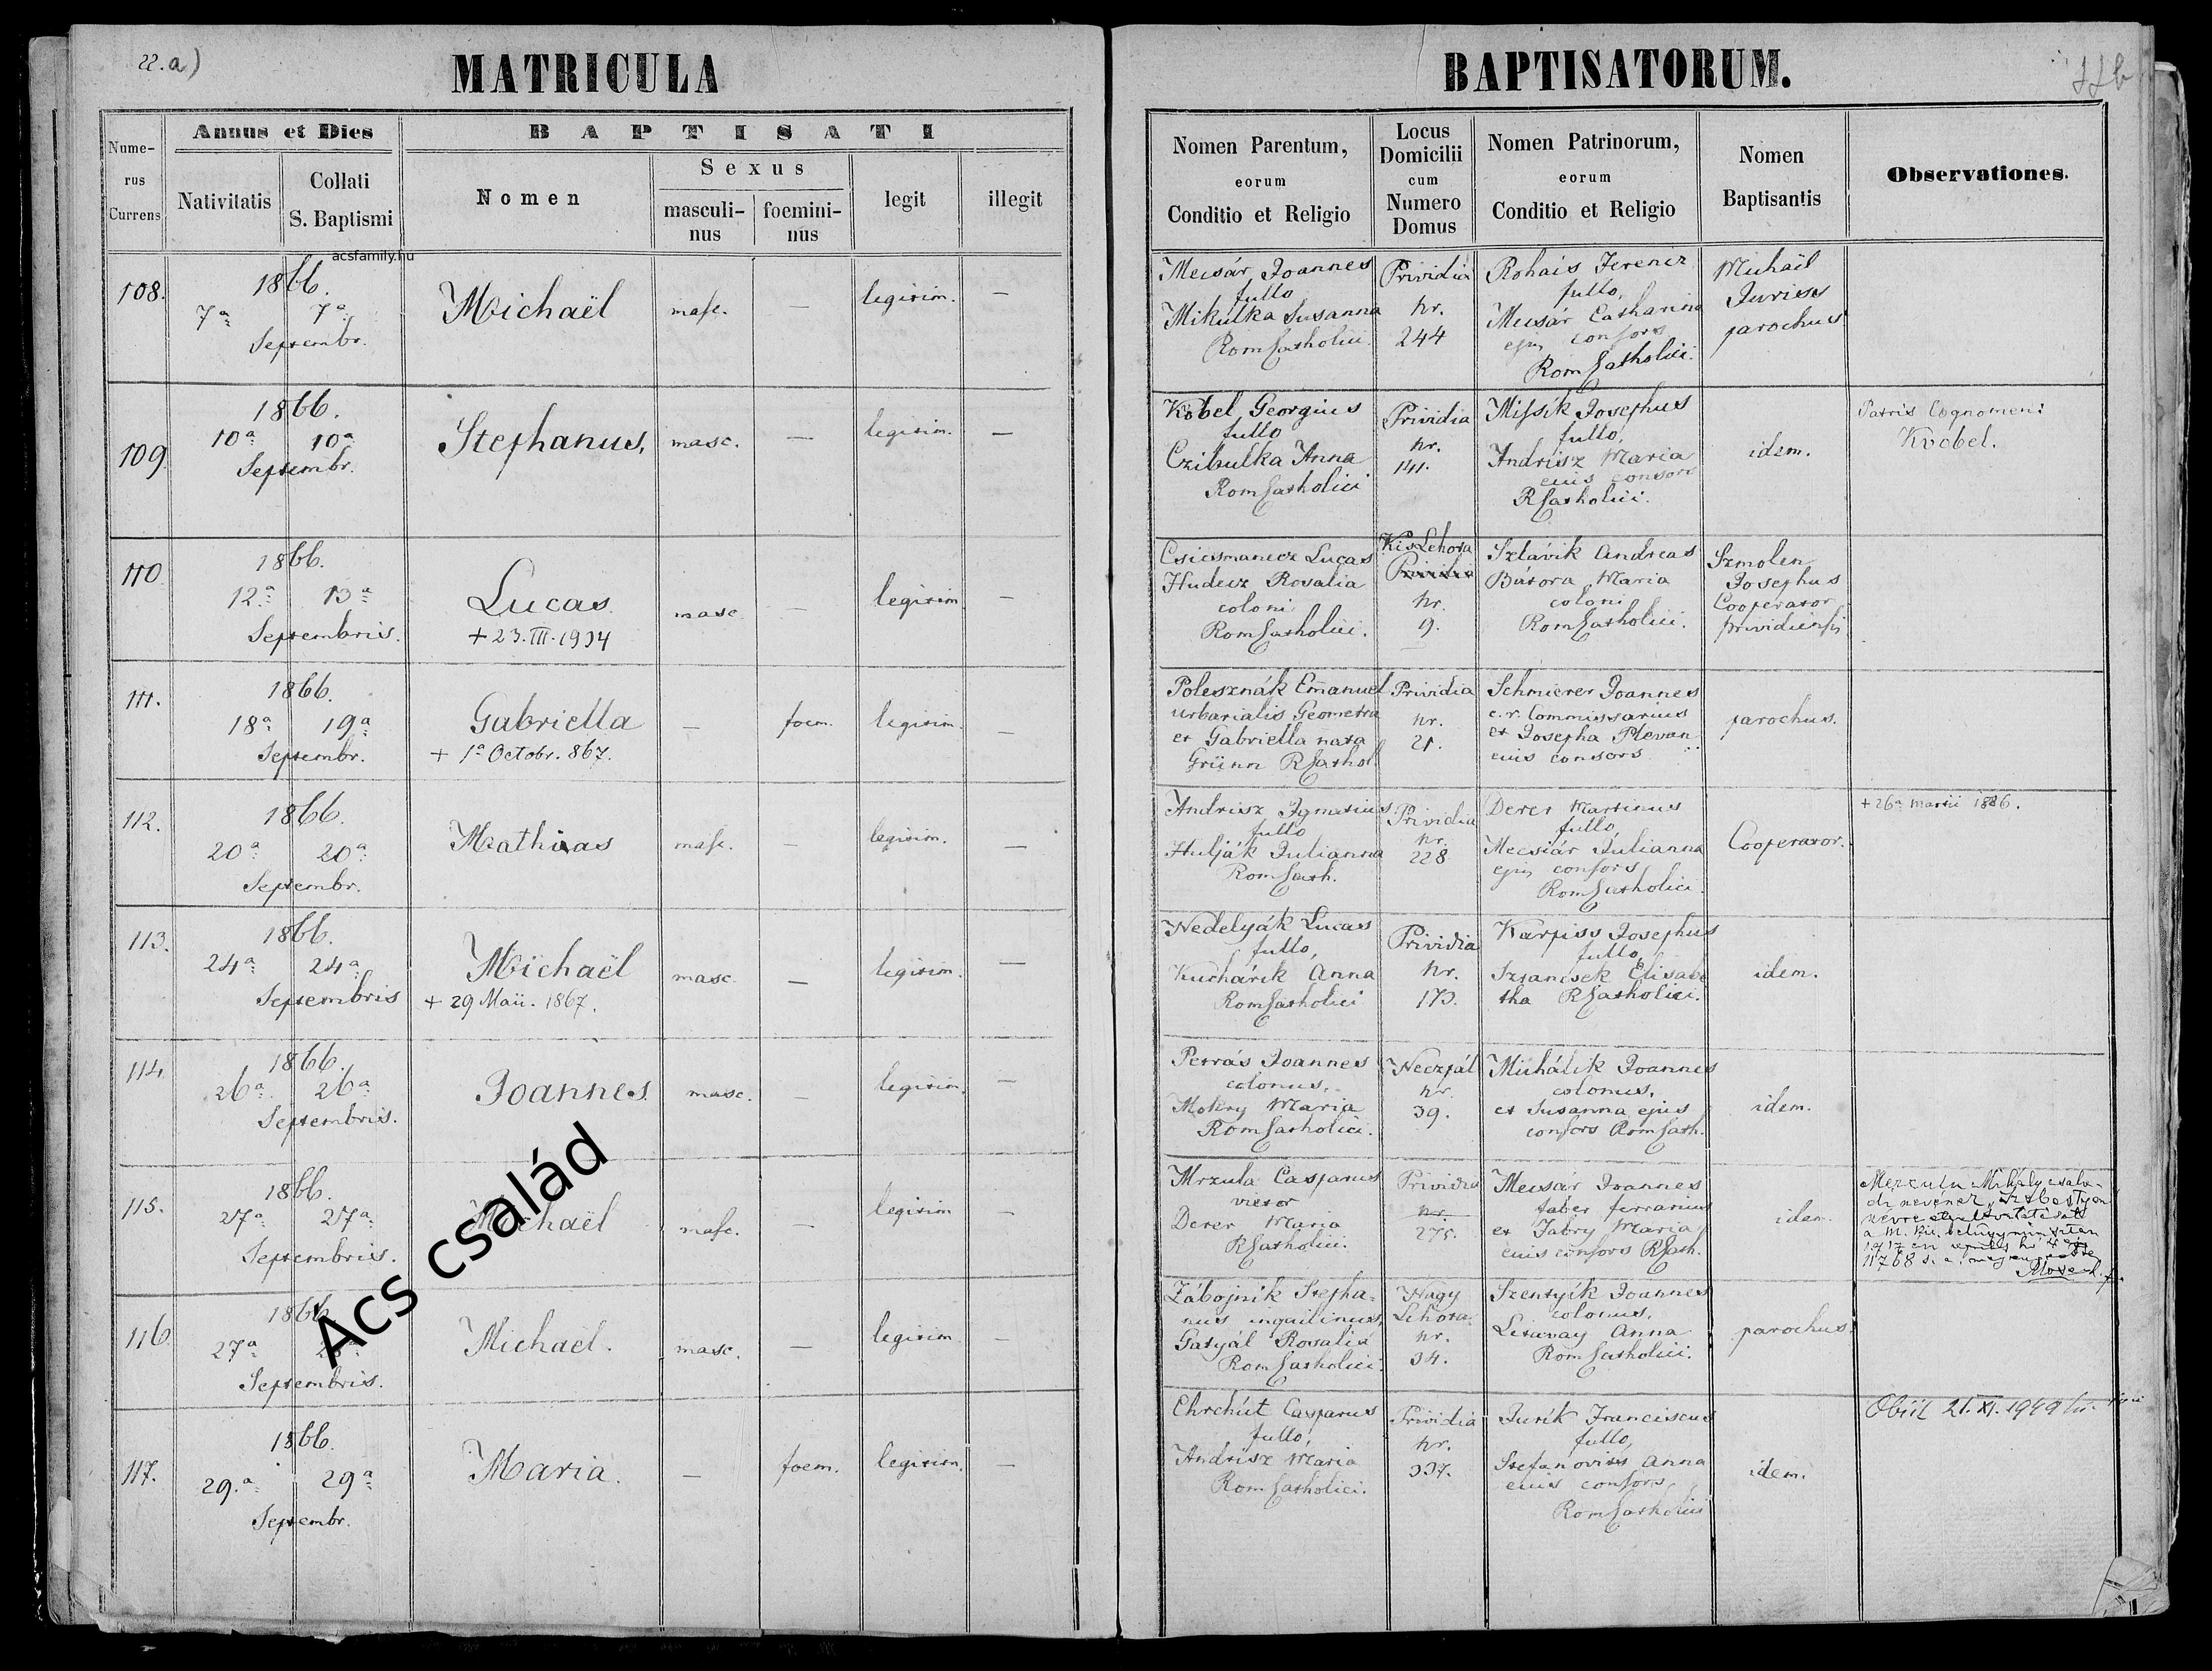 22.a)
MATRICULA
BAPTISATORUM.
Nume-
rus
Currens
Annus et Dies
Nativitatis
Collati
S. Baptismi
BAPTISATI
Nomen
Sexus
masculi-
nus
foemini-
nus
legit
illegit
Nomen Parentum,
eorum
Conditio et Religio
Locus
Domicilii
cum
Numero
Domus
Nomen Patrinorum,
eorum
Conditio et Religio
Nomen
Baptisantis
Observationes.
acsfamily.hu
108.
1866.
7a 7a
Septembr.
Michaël
masc.
—
legitim.
—
Mecsár Joannes
fullo
Mikulka Susanna
Rom Catholici.
Prividia
nr.
244
Rohais Ferencz
fullo,
Mecsár Catharina
ejus consors
Rom Catholici.
Michaël
Juriss
parochus
109
1866.
10a 10a
Septembr.
Stephanus,
masc.
—
legitim.
—
Kobel Georgius
fullo
Czibulka Anna
Rom Catholici
Prividia
nr.
141.
Missik Josephus
fullo,
Andrisz Maria
eius consors
R Catholici.
idem.
Patris Cognomen:
Kvobel.
110
1866.
12a 13a
Septembris.
Lucas
+ 23. III. 1934
masc
—
legitim
—
Csicsmanecz Lucas
Hudecz Rosalia
coloni
Rom Catholici.
Kis Lehota
Prividia
nr.
9.
Szlávik Andreas
Bútora Maria
coloni
Rom Catholici.
Szmolen
Josephus
Cooperator
prividiensis
111.
1866.
18a 19a
Septembr.
Gabriella
+ 1a Octobr. 867.
—
foem.
legitim.
—
Polesznák Emanuel
urbarialis Geometra
et Gabriella nata
Grünn R Cathol.
Prividia
nr.
21.
Schmierer Joannes
c. r. Commissarius
et Josepha Plevan
eius consors
parochus.
112.
1866.
20a 20a
Septembr.
Mathias
masc.
—
legitim.
—
Andrisz Ignatius
fullo
Hulják Julianna
Rom Cath.
Prividia
nr.
228
Derer Martinus
fullo,
Mecsiár Julianna
ejus consors
Rom Catholici.
Cooperator.
+ 26a Martii 1886.
113.
1866.
24a 24a
Septembris
Michaël
+ 29 Maii. 1867.
masc.
—
legitim.
—
Nedelyák Lucas
fullo,
Kuchárik Anna
Rom Catholici
Prividia
nr.
173.
Karpiss Josephus
fullo,
Szjancsek Elisabe
tha R Catholici.
idem.
114.
1866.
26a 26a
Septembris.
Joannes
masc.
—
legitim.
—
Petrás Joannes
colonus,
Mokry Maria
Rom Catholici.
Neczpál
nr.
39.
Michálik Joannes
colonus,
et Susanna ejus
consors Rom Cath.
idem.
115.
1866.
27a 27a
Septembris.
Michaël
masc.
—
legitim
—
Mrzula Casparus
vietor
Derer Maria
R Catholici.
Prividia
nr.
275.
Mecsár Joannes
faber ferrarius
et Fabry Maria
eius consors R Cath.
idem.
Merzula Mihály csalá-
di nevének Sebestyén
névre
a M. kir. belügyminiszter
1917
11768 s. a.
116.
1866.
27a 28a
Septembris.
Michael.
masc.
—
legitim.
—
Zábojnik Stepha-
nus inquilinus,
Gatyál Rosalia
Rom Catholici.
Nagy
Lehota
nr.
34.
Szentyik Joannes
colonus,
Letavay Anna
Rom Catholici.
parochus.
117.
1866.
29.a 29a
Septembr.
Maria.
—
foem.
legitim.
—
Ehrchút Casparus
fullo,
Andrisz Maria
Rom Catholici.
Prividia
nr.
337.
Jurík Franciscus
fullo,
Stefanovits Anna
eius consors,
Rom Catholici
idem.
Obiit 21. XI. 1949
Ács család